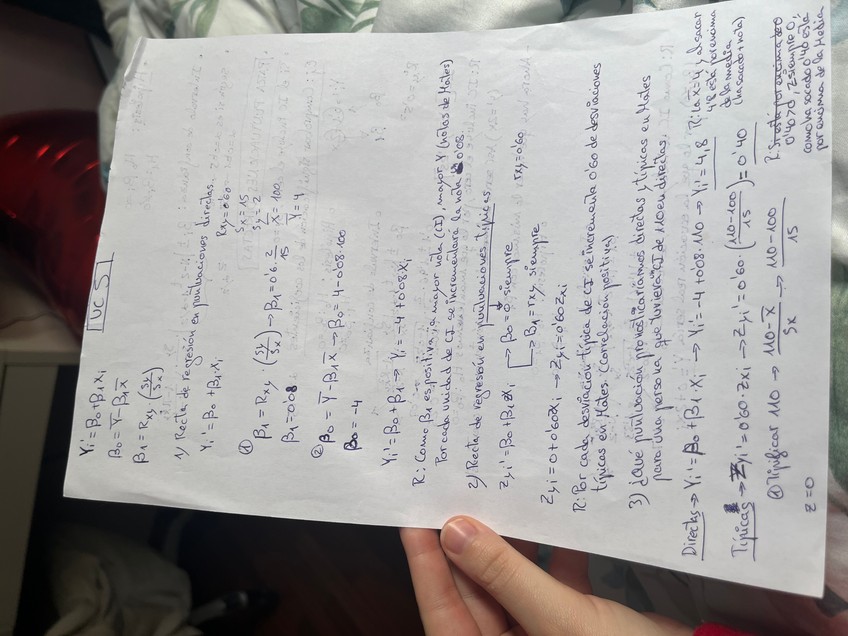 UC 5
Yi' = β0 + β1 Xi
β0 = Y̅ - β1 X̅
β1 = Rxy · (Sy/Sx)
1) Recta de regresión en puntuaciones directas.
Yi' = β0 + β1 Xi
Rxy = 0'60
Sx = 15
Sy = 2
X̅ = 100
Y̅ = 4
① β1 = Rxy · (Sy/Sx) → β1 = 0'6 · 2/15
β1 = 0'08
② β0 = Y̅ - β1 X̅ → β0 = 4 - 0'08 · 100
β0 = -4
Yi' = β0 + β1 → Yi' = -4 + 0'08 Xi
R: Como β1 es positiva, a mayor nota (CI), mayor Y (notas de Mates)
Por cada unidad de CI se incrementará la nota 0'08.
2) Recta de regresión en puntuaciones típicas.
Zyi' = β0 + β1 Zxi
→ β0 = 0 siempre
→ β1 = rxy siempre
rxy = 0'60
Zyi = 0 + 0'60Zxi → Zyi = 0'60Zxi
R: Por cada desviación típica de CI se incrementa 0'60 de desviaciones
típicas en Mates. (Correlación positiva)
3) ¿Qué puntuación pronosticaríamos directas y típicas en Mates
para una persona que tuviera CI de 110 en directas.
Directas → Yi' = β0 + β1 · Xi → Yi' = -4 + 0'08 · 110 → Yi' = 4,8
R: la x̅ = 4, al sacar
4'8 está por encima
de la media
(ha sacado + nota)
Típicas → Zyi' = 0'60 · Zxi → Zyi' = 0'60 · (110-100/15) = 0'40
① Tipificar 110 → 110 - X̅/Sx → 110 - 100/15
z = 0
R: Si está por encima de 0
0'40 > 0 Z siempre 0,
como ha sacado 0'40 está
por encima de la Media